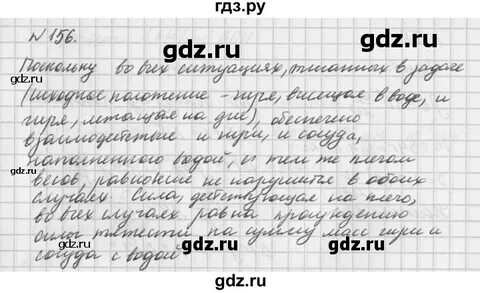 гдз.ру
№ 156.
gdz.ru gdz.ru
Поскольку во всех ситуациях, описанных в задаче
(исходное положение - гиря, висящая в воде, и
гиря, лежащая на дне), обеспечено
взаимодействие и гири, и сосуда,
gdz.ru gdz.ru
наполненного водой, с тем же плечом
весов, равновесие не нарушится в обоих
случаях Сила, действующая на плечо,
gdz.ru gdz.ru
во всех случаях равна произведению
силы тяжести на сумму масс гири и
сосуда с водой
gdz.ru gdz.ru